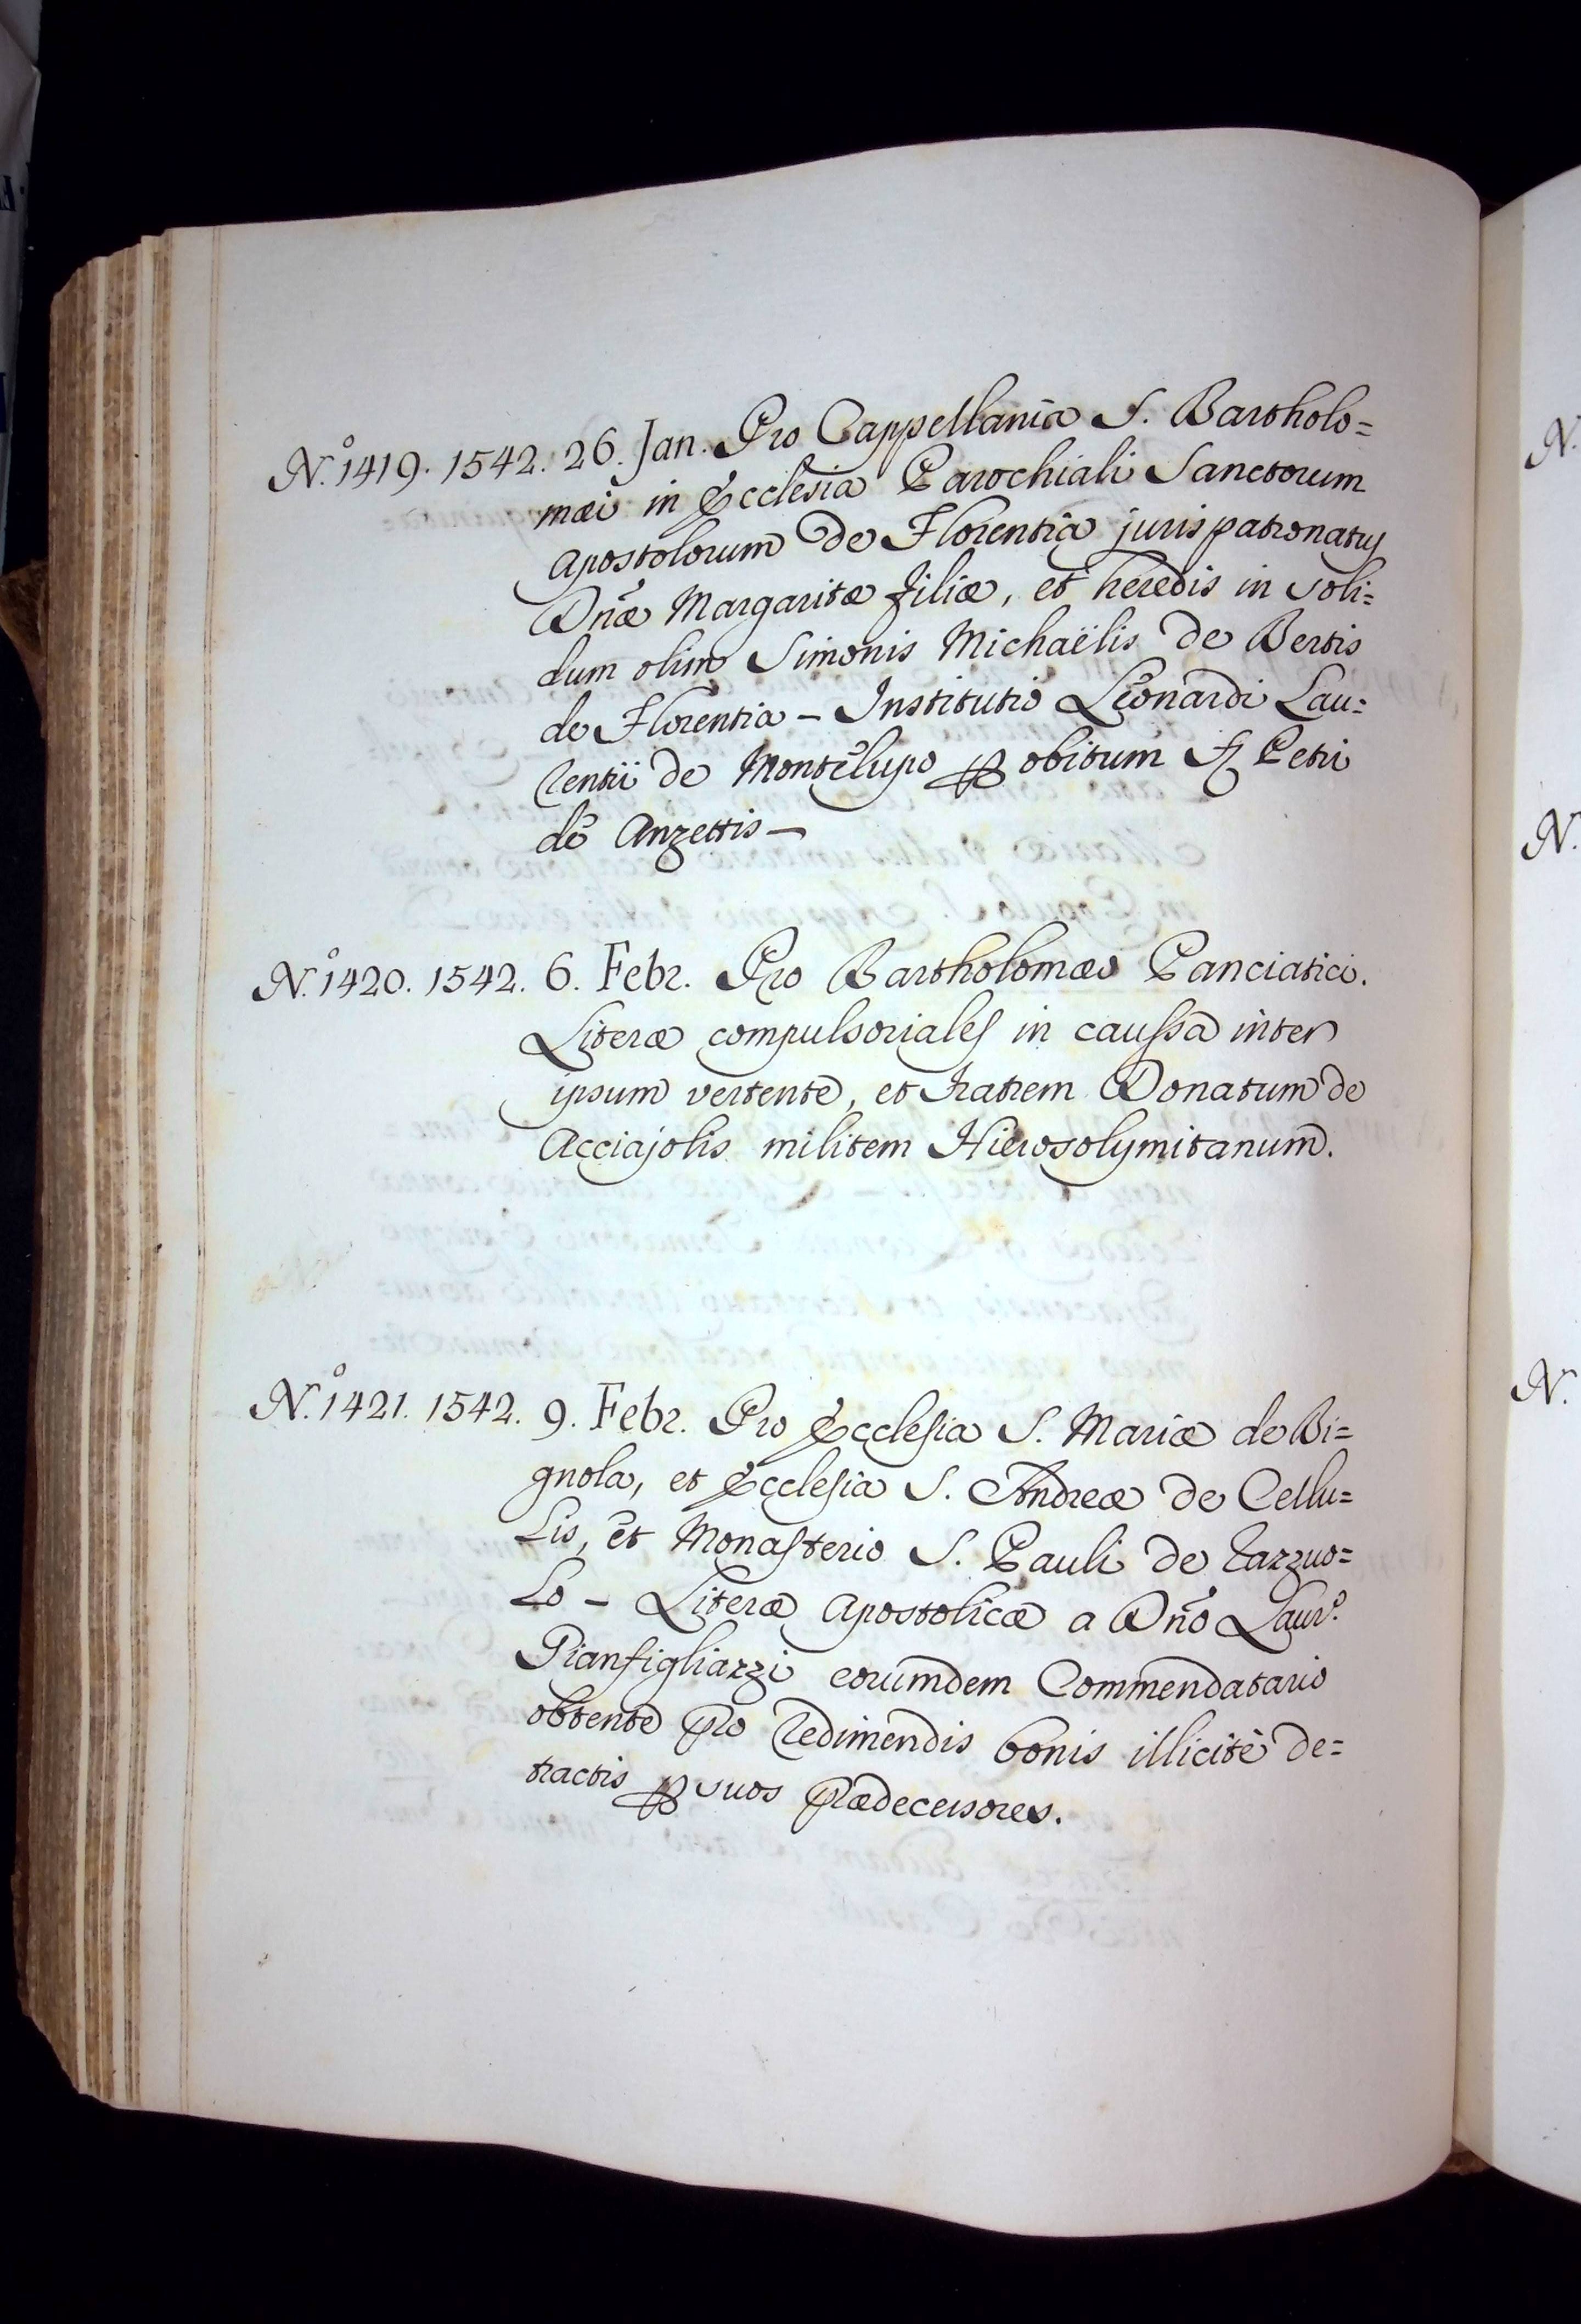 N.º 1419. 1542. 26. Jan. Pro Cappellania S. Bartholo=
mæi in Ecclesia Parochiali Sanctorum
Apostolorum de Florentia jurispatronatus
Dnæ Margaritæ filiæ, et heredis in soli=
dum olim Simonis Michaëlis de Bertis
de Florentia – Institutio Leonardi Lau=
rentii de Montelupo ꝑ obitum Petri
de Anzettis –
N.º 1420. 1542. 6. Febr. Pro Bartholomæo Panciatici.
Literæ compulsoriales in caussa inter
ipsum vertente, et Fratrem Donatum de
Acciajolis militem Hierosolymitanum.
N.º 1421. 1542. 9. Febr. Pro Ecclesia S. Mariæ de Bi=
gnola, et Ecclesia S. Andreæ de Cellu=
lis, et Monasterio S. Pauli de Razzuo=
lo – Literæ Apostolicæ a Dño Laur.º
Gianfigliazzi eorumdem Commendatario
obtente pro redimendis bonis illicitè de=
tractis ꝑ suos prædecessores.
N.
N.
N.